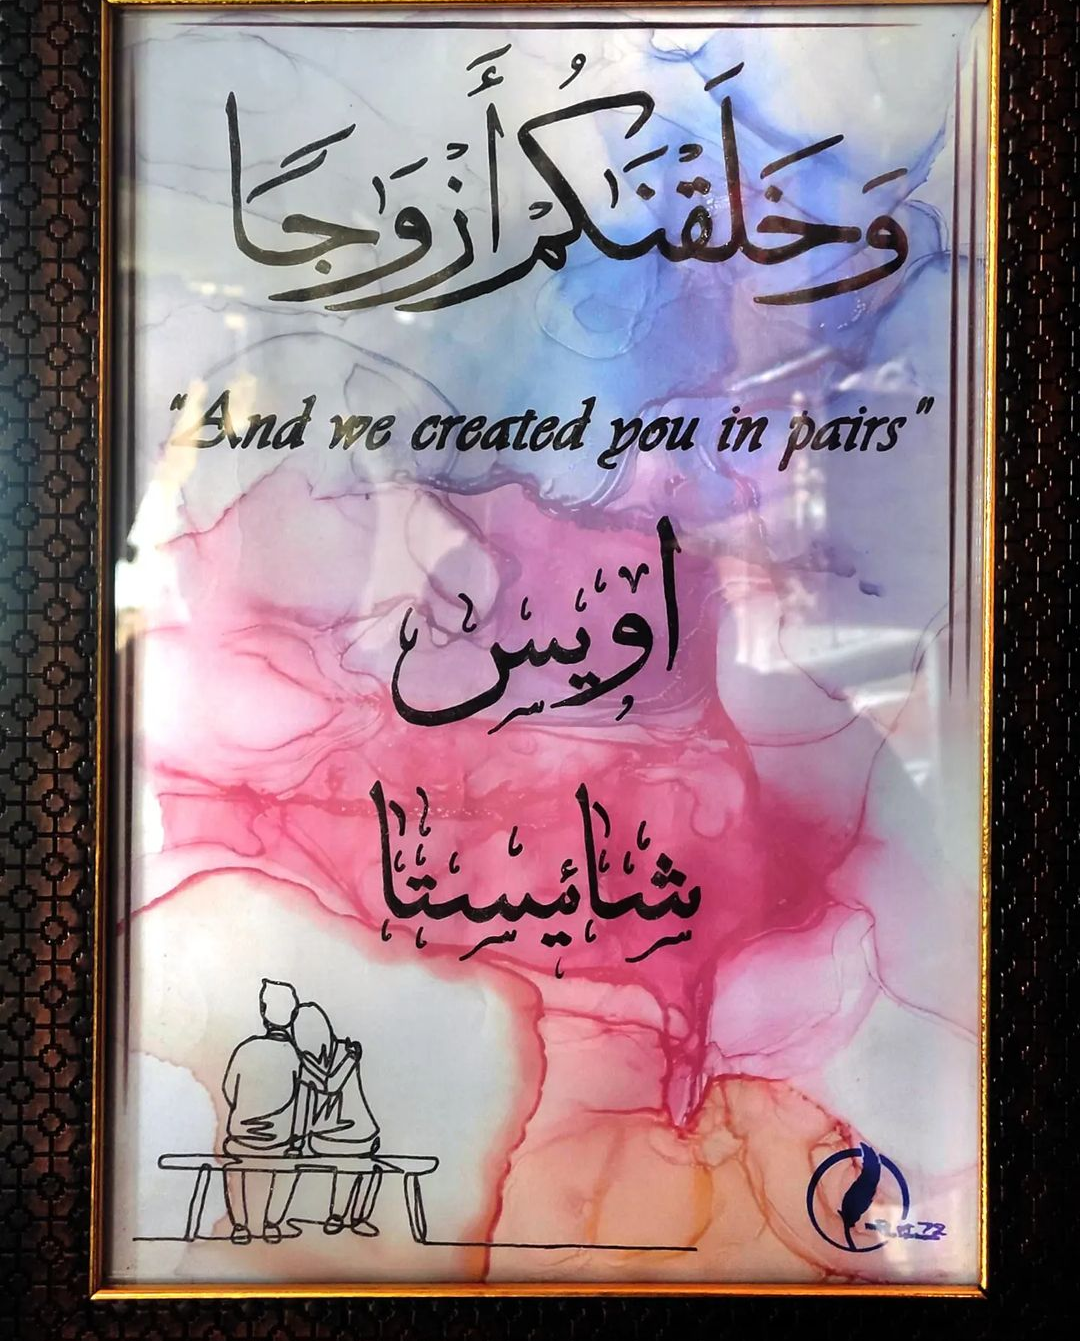 وَخَلَقْنَٰكُمْ أَزْوَٰجًا
"And we created you in pairs"
اویس
شائیستا